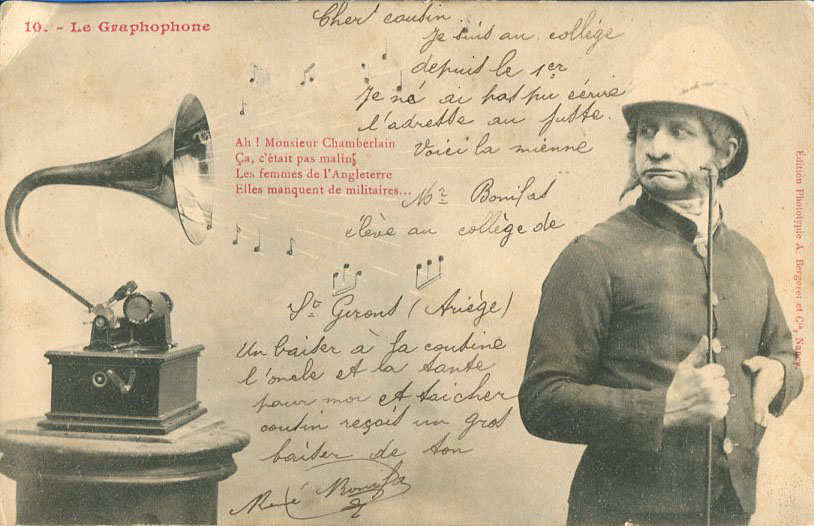 10. - Le Graphophone
Cher cousin
Je suis au collège
depuis le 1er
Je né ai pas pu écrire
l'adresse au juste.
Voici la mienne
Ah ! Monsieur Chamberlain
Ça, c'était pas malin,
Les femmes de l'Angleterre
Elles manquent de militaires...
Mr Bonifas
élève au collège de
St Girons (Ariège)
Un baiser à la cousine
l'oncle et la tante
pour moi et toi cher
cousin reçois un gros
baiser de ton
René Bonifas
Edition Phototypie A. Bergeret et Cie, Nancy